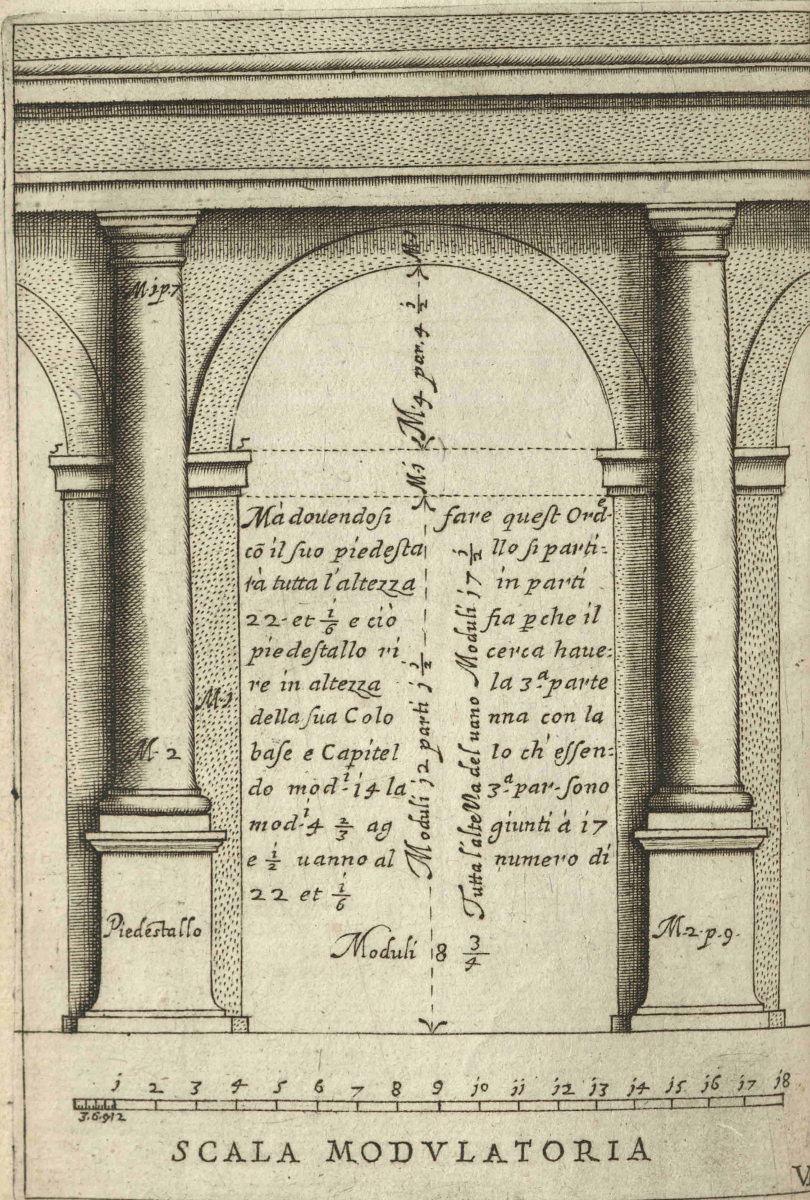 M·j
M·1p7
M·4 par·4 j/2
5 5
M·j
Ma douendosi fare quest Ord.e
cō il suo piedestallo si parti:
rà tutta l'altezza in parti
22· et i/6 e ciò fia p che il
piedestallo ricerca haue:
re in altezza la 3.a parte
della sua Colonna con la
base e Capitello ch' essen:
do mod.i i4 la 3.a par· sono
mod.i 4 2/3 agiunti à i7
e i/2 uanno al numero di
22 et i/6
Moduli j2 parti j j/2
Tutta l'alteza del uano Moduli j7 j/2
M·j
M· 2
Piedestallo
Moduli 8 3/4
M·2·p·9·
j 2 3 4 5 6 7 8 9 jo jj j2 j3 j4 j5 j6 j7 j8
3·6·9·12
SCALA MODVLATORIA
V